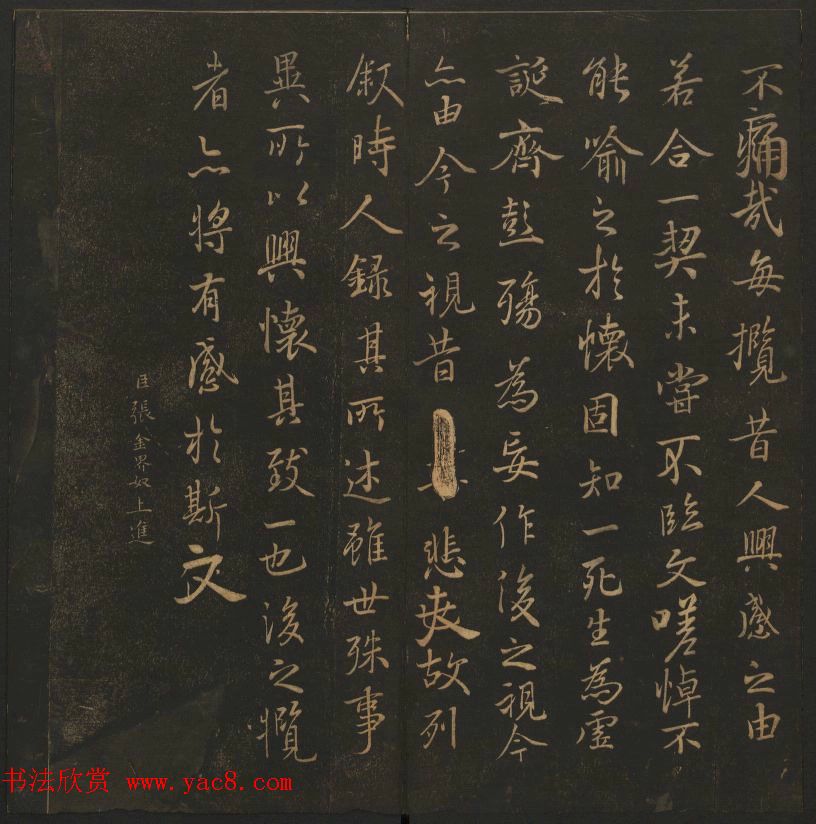 不痛哉每攬昔人興感之由
若合一契未甞不臨文嗟悼不
能喻之於懷固知一死生為虛
誕齊彭殤為妄作後之視今
亦由今之視昔 悲夫故列
敘時人錄其所述雖世殊事
異所以興懷其致一也後之攬
者亦將有感於斯文
臣張金界奴上進
书法欣赏 www.yac8.com